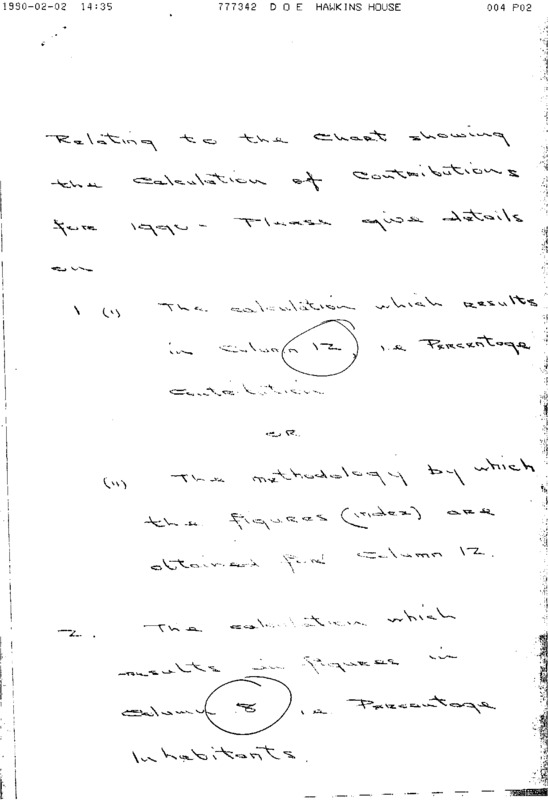 1990-02-02 14:35 777342 D O E HAWKINS HOUSE 004 P02
Relating to the Chart showing
the Calculation of Contributions
for 1990 - Please give details
on
1 (i) The calculation which results
in Column 12, i.e Percentage
Contribution
OR
(ii) The methodology by which
the figures (index) are
obtained for Column 12.
2. The calculation which
results in figures in
Column 8 i.e Percentage
Inhabitants.